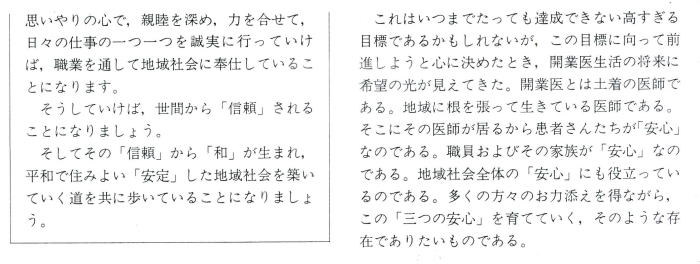 思いやりの心で，親睦を深め，力を合せて，
日々の仕事の一つ一つを誠実に行っていけ
ば，職業を通して地域社会に奉仕しているこ
とになります。
そうしていけば，世間から「信頼」される
ことになりましょう。
そしてその「信頼」から「和」が生まれ，
平和で住みよい「安定」した地域社会を築い
ていく道を共に歩いていることになりましょ
う。
これはいつまでたっても達成できない高すぎる
目標であるかもしれないが，この目標に向って前
進しようと心に決めたとき，開業医生活の将来に
希望の光が見えてきた。開業医とは土着の医師で
ある。地域に根を張って生きている医師である。
そこにその医師が居るから患者さんたちが「安心」
なのである。職員およびその家族が「安心」なの
である。地域社会全体の「安心」にも役立ってい
るのである。多くの方々のお力添えを得ながら，
この「三つの安心」を育てていく，そのような存
在でありたいものである。